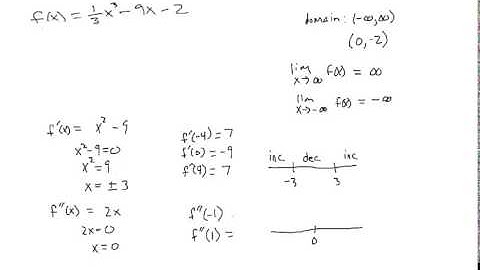 f(x) = 1/3 x³ - 9x - 2
domain: (-∞, ∞)
(0, -2)
lim x→∞ f(x) = ∞
lim x→-∞ f(x) = -∞
f'(x) = x² - 9
x² - 9 = 0
x² = 9
x = ± 3
f'(-4) = 7
f'(0) = -9
f'(4) = 7
inc dec inc
-3 3
f''(x) = 2x
2x = 0
x = 0
f''(-1)
f''(1) =
0